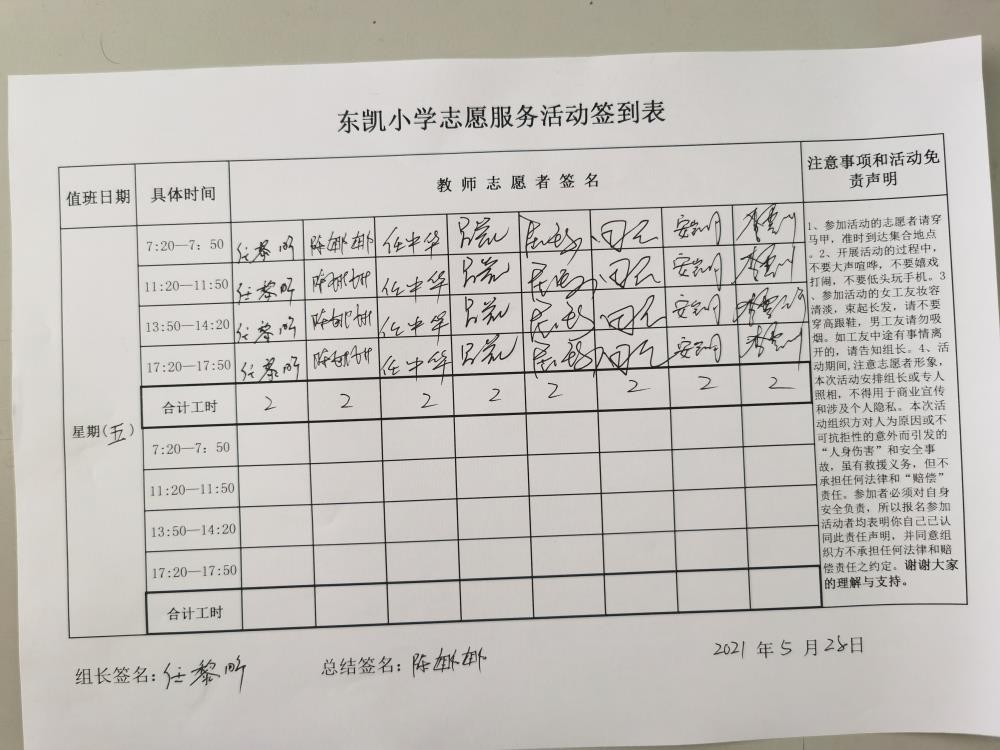 东凯小学志愿服务活动签到表
值班日期 具体时间 教师志愿者签名 注意事项和活动免责声明
星期(五)
7:20—7:50 任黎昕 陈娜娜 任中华 吕凯
11:20—11:50 任黎昕 陈娜娜 任中华 吕凯
13:50—14:20 任黎昕 陈娜娜 任中华 吕凯
17:20—17:50 任黎昕 陈娜娜 任中华 吕凯
合计工时 2 2 2 2 2 2 2 2
7:20—7:50
11:20—11:50
13:50—14:20
17:20—17:50
合计工时
1、参加活动的志愿者请穿
马甲,准时到达集合地点
。2、开展活动的过程中,
不要大声喧哗,不要嬉戏
打闹,不要低头玩手机。3
、参加活动的女工友妆容
清淡,束起长发,请不要
穿高跟鞋,男工友请勿吸
烟。如工友中途有事情离
开的,请告知组长。4、活
动期间,注意志愿者形象,
本次活动安排组长或专人
照相,不得用于商业宣传
和涉及个人隐私。本次活
动组织方对人为原因或不
可抗拒性的意外而引发的
“人身伤害”和安全事
故,虽有救援义务,但不
承担任何法律和“赔偿”
责任。参加者必须对自身
安全负责,所以报名参加
活动者均表明你自己已认
同此责任声明,并同意组
织方不承担任何法律和赔
偿责任之约定。谢谢大家
的理解与支持。
组长签名:任黎昕 总结签名:陈娜娜 2021 年 5 月 28 日